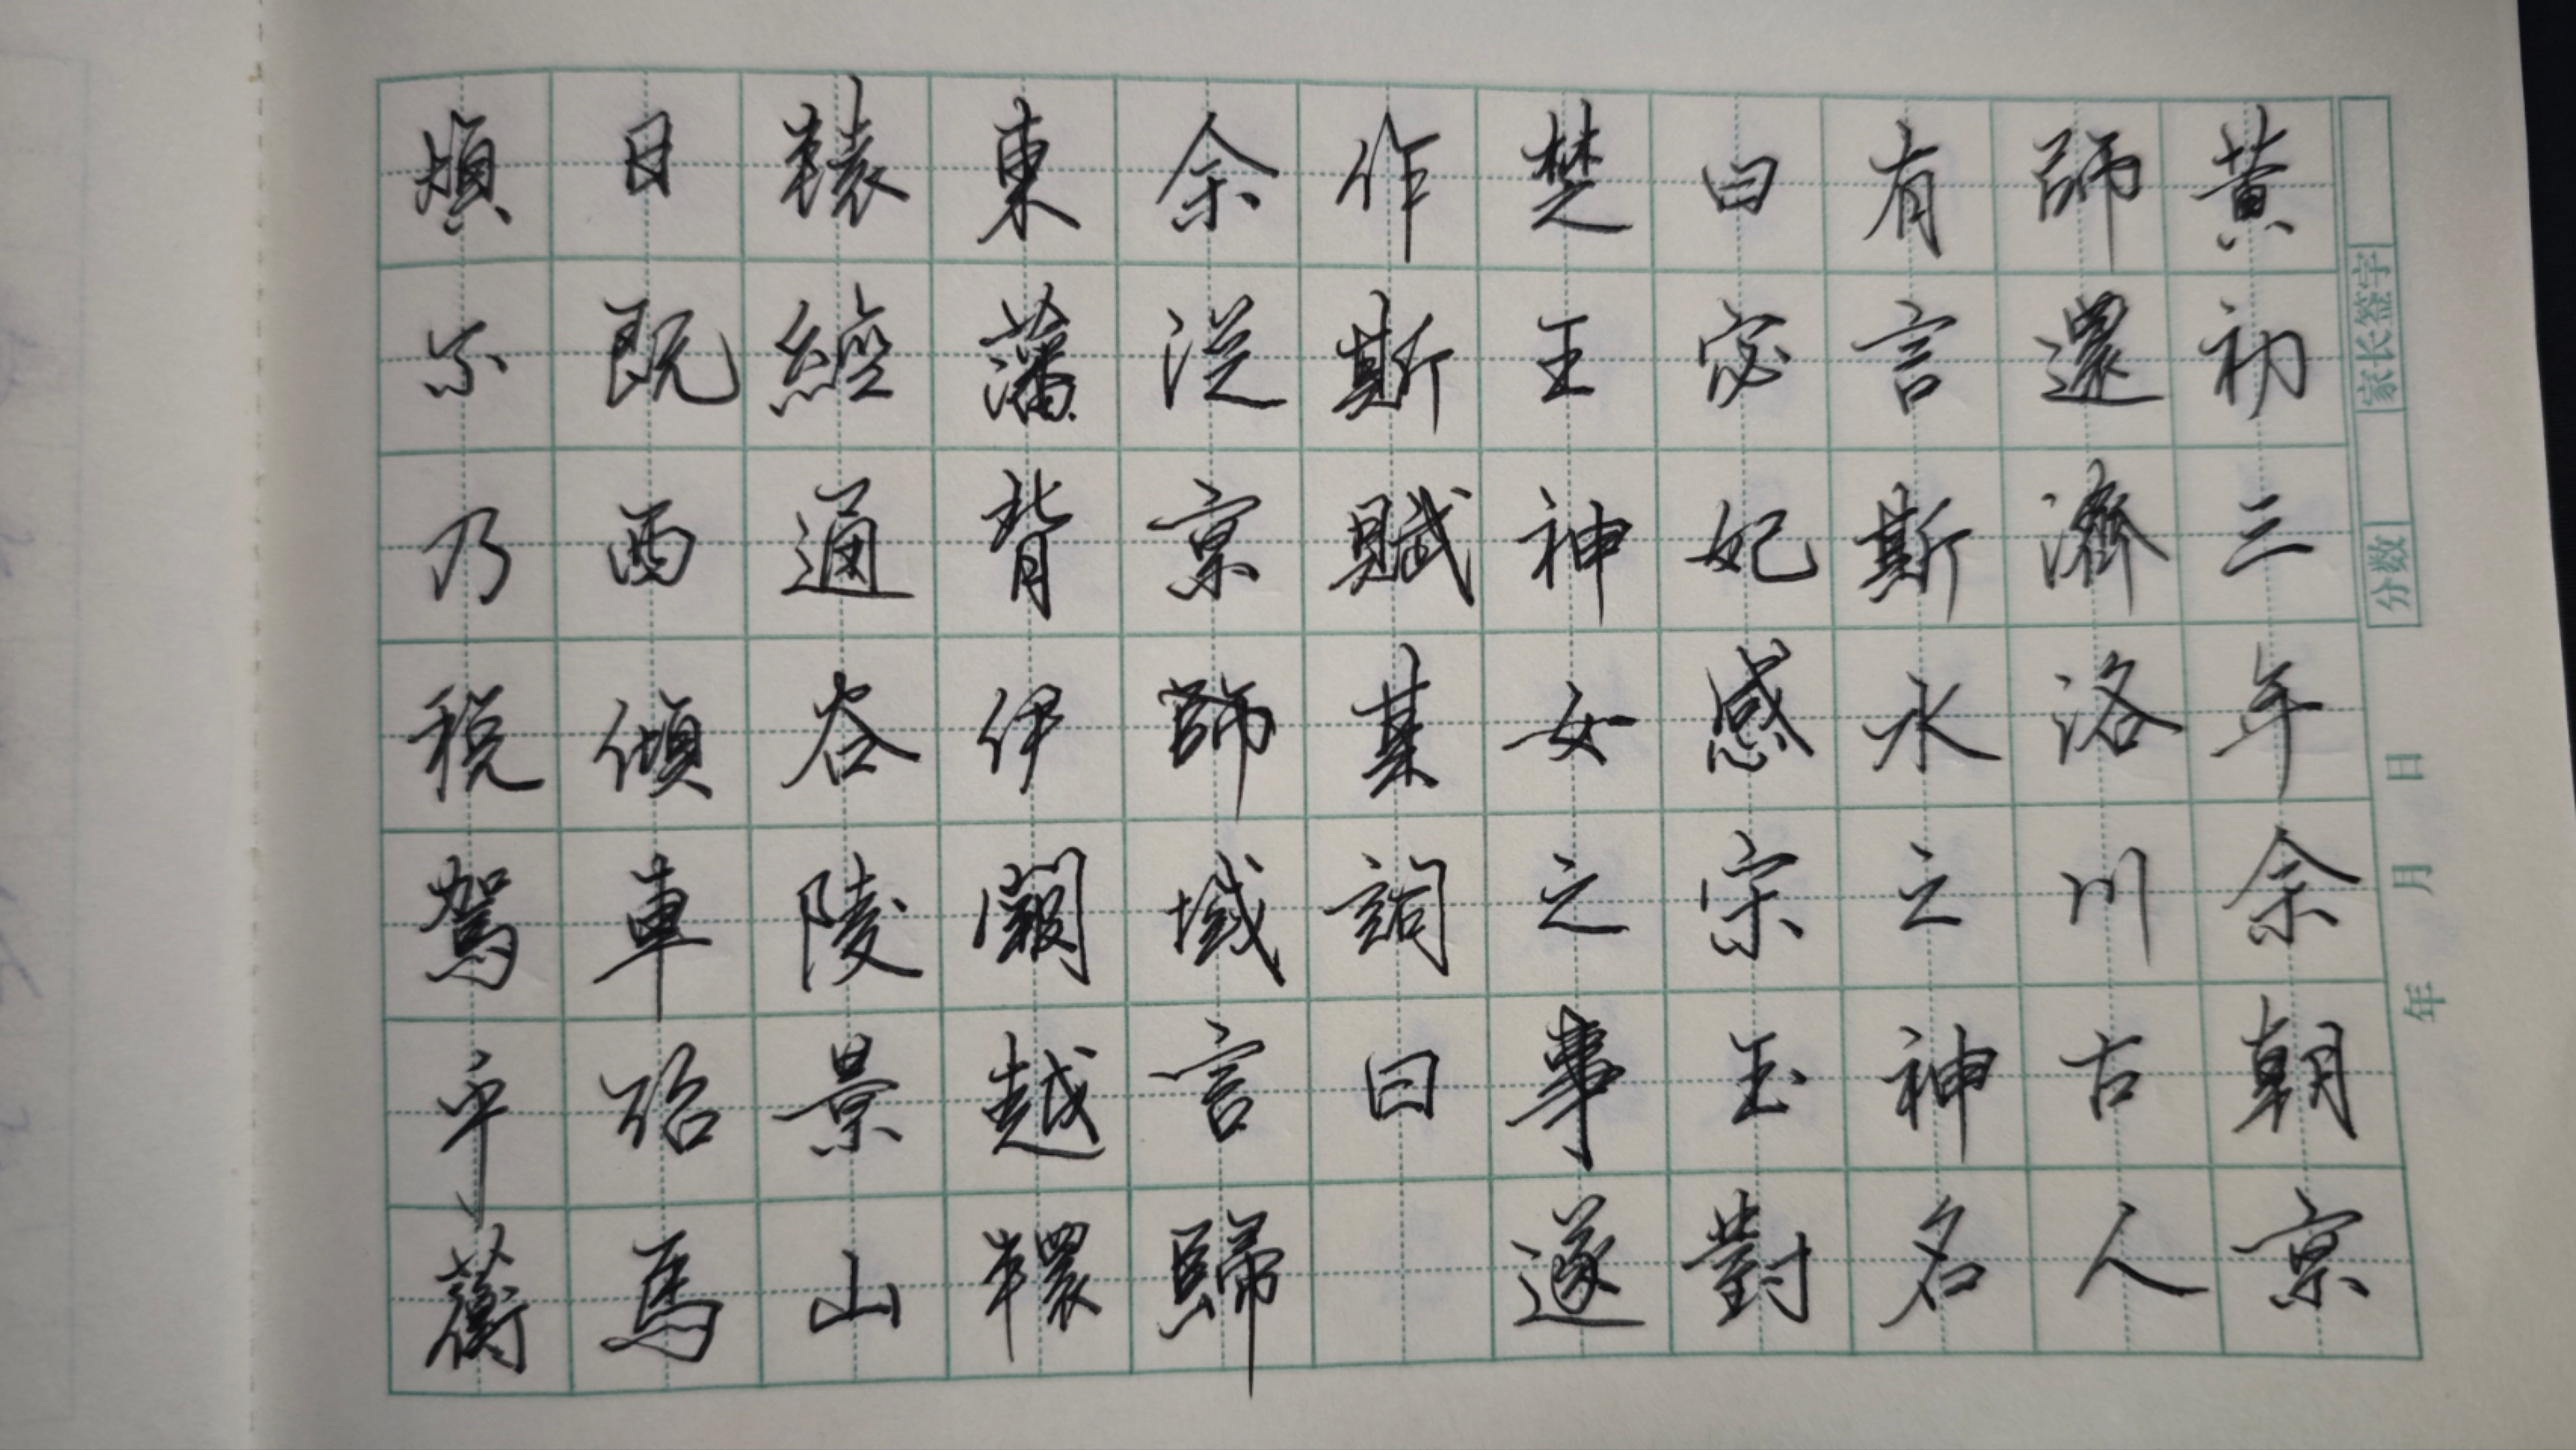 黄初三年余朝京
師還濟洛川古人
有言斯水之神名
曰宓妃感宋玉對
楚王神女之事遂
作斯賦其詞曰
余從京師域言歸
東藩背伊闕越轘
轅經通谷陵景山
日既西傾車殆馬
煩尒乃税駕乎蘅
家长签字
分数
年 月 日